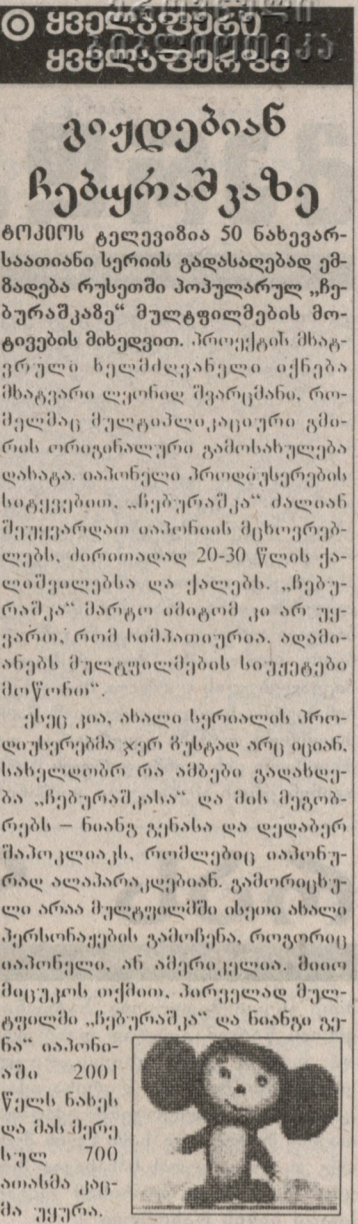 ყველაფერი
ყველაფერზე
გიჟდებიან
ჩებურაშკაზე
ტოკიოს ტელევიზია 50 ნახევარ-
საათიანი სერიის გადასაღებად ემ-
ზადება რუსეთში პოპულარულ „ჩე-
ბურაშკაზე“ მულტფილმების მო-
ტივების მიხედვით. პროექტის მხატ-
ვრული ხელმძღვანელი იქნება
მხატვარი ლეონიდ შვარცმანი, რო-
მელმაც მულტიპლიკაციური გმი-
რის ორიგინალური გამოსახულება
დახატა. იაპონელი პროდიუსერების
სიტყვებით, „ჩებურაშკა“ ძალიან
შეუყვარდათ იაპონიის მცხოვრებ-
ლებს, ძირითადად 20-30 წლის ქა-
ლიშვილებსა და ქალებს. „ჩებუ-
რაშკა“ მარტო იმიტომ კი არ უყ-
ვართ, რომ სიმპათიურია. ადამი-
ანებს მულტფილმების სიუჟეტები
მოწონთ“.
ესეც კია, ახალი სერიალის პრო-
დიუსერებმა ჯერ ზუსტად არც იციან,
სახელდობრ რა ამბები გადახდე-
ბა „ჩებურაშკასა“ და მის მეგობ-
რებს – ნიანგ გენასა და დედაბერ
შაპოკლიაკს, რომლებიც იაპონუ-
რად ალაპარაკდებიან. გამორიცხუ-
ლი არაა მულტფილმში ისეთი ახალი
პერსონაჟების გამოჩენა, როგორიც
იაპონელი, ან ამერიკელია. მიიო
მიცუკოს თქმით, პირველად მულ-
ტფილმი „ჩებურაშკა“ და ნიანგი გე-
ნა“ იაპონი-
აში 2001
წელს ნახეს
და მას მერე
სულ 700
ათასმა კაც-
მა უყურა.